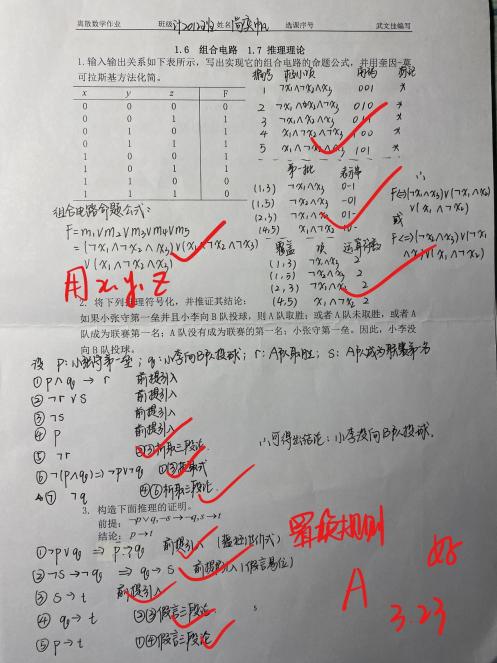 离散数学作业 班级 计2012班 姓名 选课序号 武文佳编写
1.6 组合电路 1.7 推理理论
1.输入输出关系如下表所示，写出实现它的组合电路的命题公式，并用奎因-莫
可拉斯基方法化简。
x y z F
0 0 0 0
0 0 1 1
0 1 0 1
0 1 1 1
1 0 0 1
1 0 1 1
1 1 0 0
1 1 1 0
编号 极小项 角码 标记
1 ¬x₁∧¬x₂∧x₃ 001 *
2 ¬x₁∧x₂∧¬x₃ 010 *
3 ¬x₁∧x₂∧x₃ 011 *
4 x₁∧¬x₂∧¬x₃ 100 *
5 x₁∧¬x₂∧x₃ 101 *
第一批 表示串
(1,3) ¬x₁∧x₃ 0-1
(1,5) ¬x₂∧x₃ -01
(2,3) ¬x₁∧x₂ 01-
(4,5) x₁∧¬x₂ 10-
覆盖 项 运算符数
(1,3) ¬x₁∧x₃ 2
(1,5) ¬x₂∧x₃ 2
(2,3) ¬x₁∧x₂ 2
(4,5) x₁∧¬x₂ 2
∴
F⇔(¬x₁∧x₃)∨(¬x₁∧x₂)
∨(x₁∧¬x₂)
或
F⇔(¬x₂∧x₃)∨(¬x₁
∧x₂)∨(x₁∧¬x₂)
组合电路命题公式：
F=m₁∨m₂∨m₃∨m₄∨m₅
用x,y,z
2. 将下列推理符号化，并推证其结论：
如果小张守第一垒并且小李向B队投球，则A队取胜；或者A队未取胜，或者A
队成为联赛第一名；A队没有成为联赛的第一名；小张守第一垒。因此，小李没
向B队投球。
设 p:小张守第一垒；q:小李向B队投球；r:A队取胜；s:A队成为联赛第一名
①p∧q→r 前提引入
②¬r∨s 前提引入
③¬s 前提引入
④p 前提引入
⑤¬r ②③析取三段论
⑥¬(p∧q)⇔¬p∨¬q ①⑤拒取式
⑦¬q ④⑥析取三段论
∴可得出结论：小李没向B队投球.
3. 构造下面推理的证明。
前提：¬p∨q,¬s→¬q,s→t
结论：p→t
①¬p∨q ⇒ p→q 前提引入(蕴涵等价式)
②¬s→¬q ⇒ q→s 前提引入(假言易位)
③s→t 前提引入
④q→t ②③假言三段论
⑤p→t ①④假言三段论
置换规则
好
A
3.23